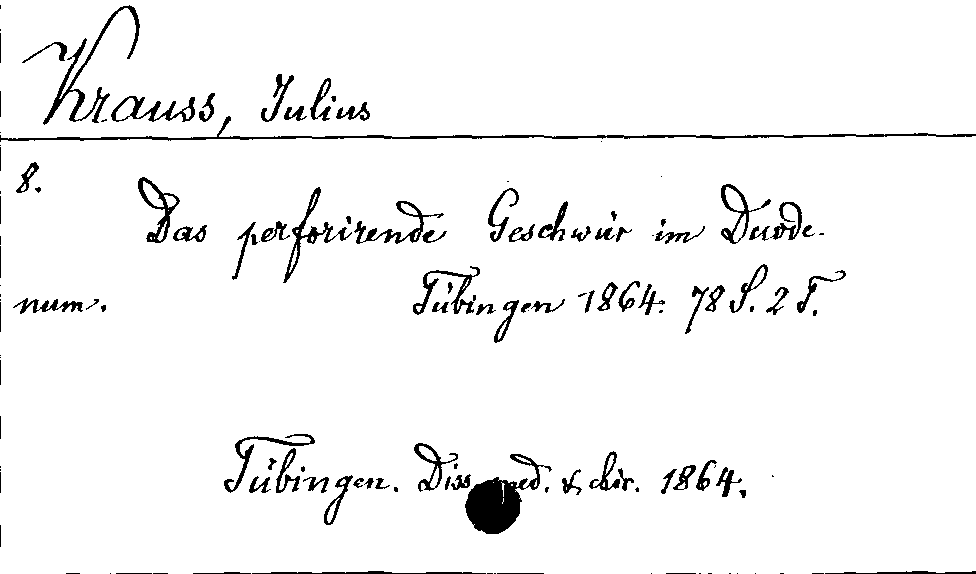 Krauss, Julius
8.
Das perforirende Geschwür im Duode-
num. Tübingen 1864. 78 S. 2 T.
Tübingen. Diss. med. & chir. 1864.